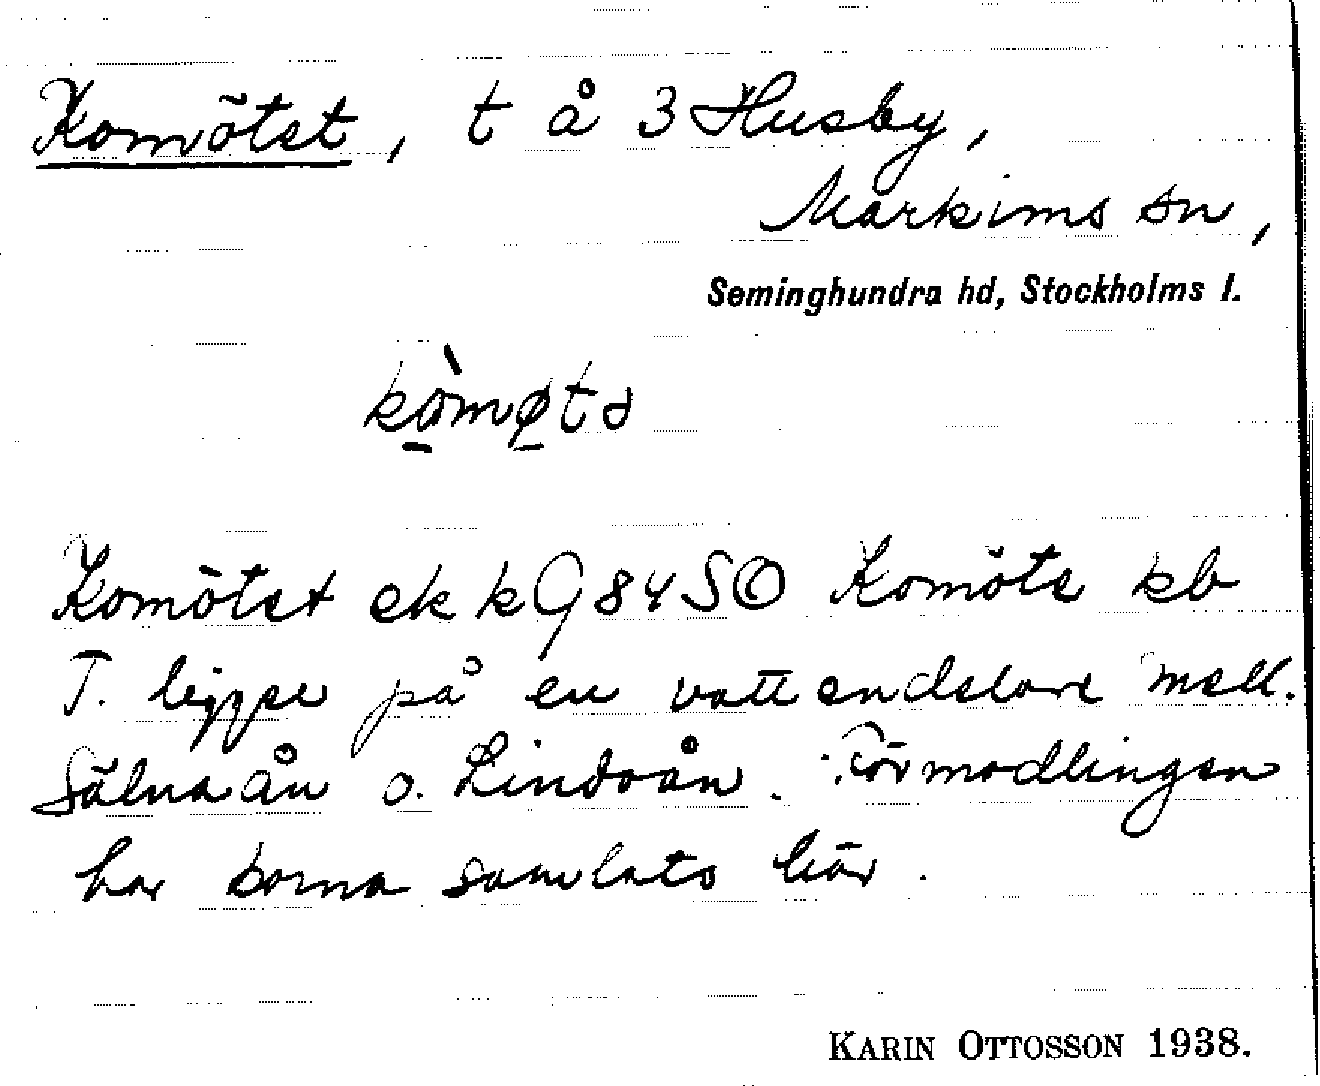 Komötet, t å 3 Husby,
Markims sn,
Seminghundra hd, Stockholms l.
kòmøtə
Komötet ek kG 84 SO Komöte kb
T. ligger på en vattendelare mell.
Sälnaån o. Lindoån. Förmodligen
har korna samlats här.
KARIN OTTOSSON 1938.